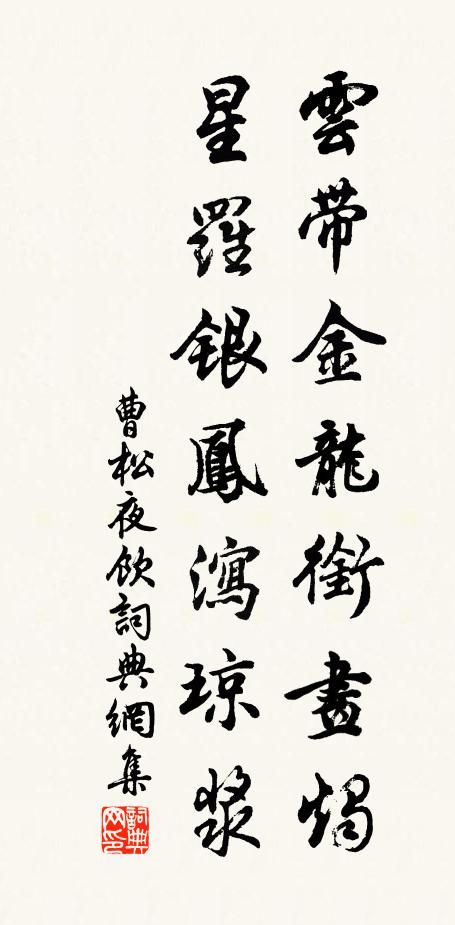 雲帶金龍銜畫燭
星羅銀鳳瀉瓊漿
曹松夜飲詞典網集
詞典
网印